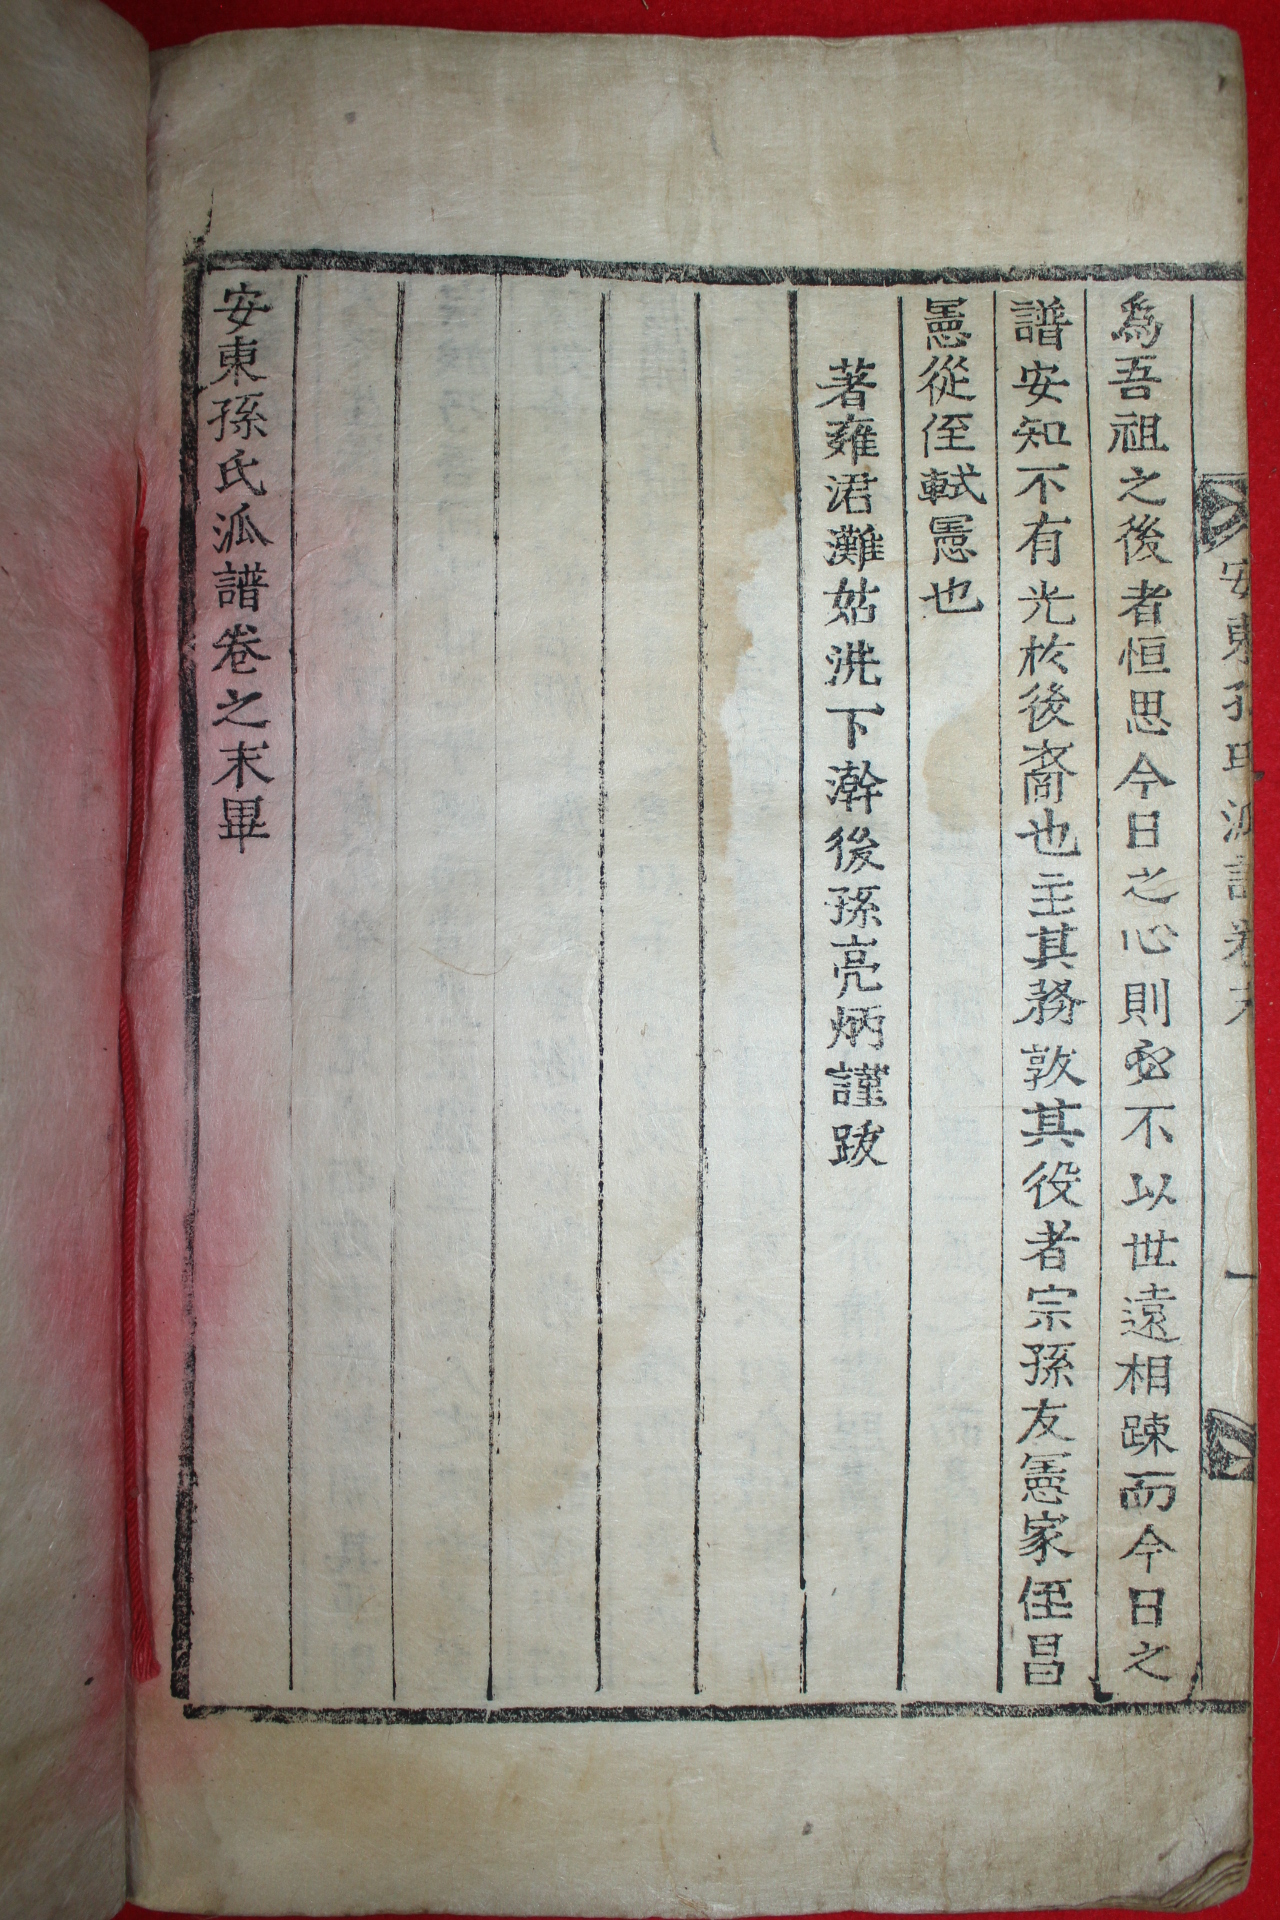 安東孫氏泒譜卷末 一
為吾祖之後者恒思今日之心則必不以世遠相踈而今日之
譜安知不有光扵後裔也主其務敦其役者宗孫友憲家侄昌
憲從侄軾憲也
著雍涒灘姑洗下澣後孫亮炳謹跋
安東孫氏泒譜卷之末畢